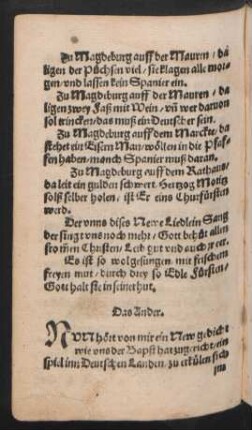 Zu Magdeburg auff der Mauren / da
ligen der Püchsen viel / sie klagen alle mor-
gen / vnd lassen kein Spanier ein.
Zu Magdeburg auff der Mauren / da
ligen zwey Faß mit Wein / vñ wer daruon
sol trincken / das muß ein Deutscher sein.
Zu Magdeburg auff dem Marckte / da
stehet ein Eisern Man / wöllen in die Pfaf-
fen haben / manch Spanier muß daran.
Zu Magdeburg auff dem Rathaus /
da leit ein gulden schwert. Hertzog Moritz
solß selber holen / ist Er eins Churfürsten
werd.
Der vnns dises Newe Liedlein Sang
der singt vns noch meht / Gott behüt allen
from̃en Christen / Leib gut vnd auch
Es ist so wolgesungen mit frischem
freyen mut / durch drey so Edle Fürsten /
Gott halt sie in seiner hut.
Das Ander.
NVn hört von mir ein New gedicht
wie vns der Bapst hat zugericht / ein
spiel inn Deutschen Landen / zu erkülen sich